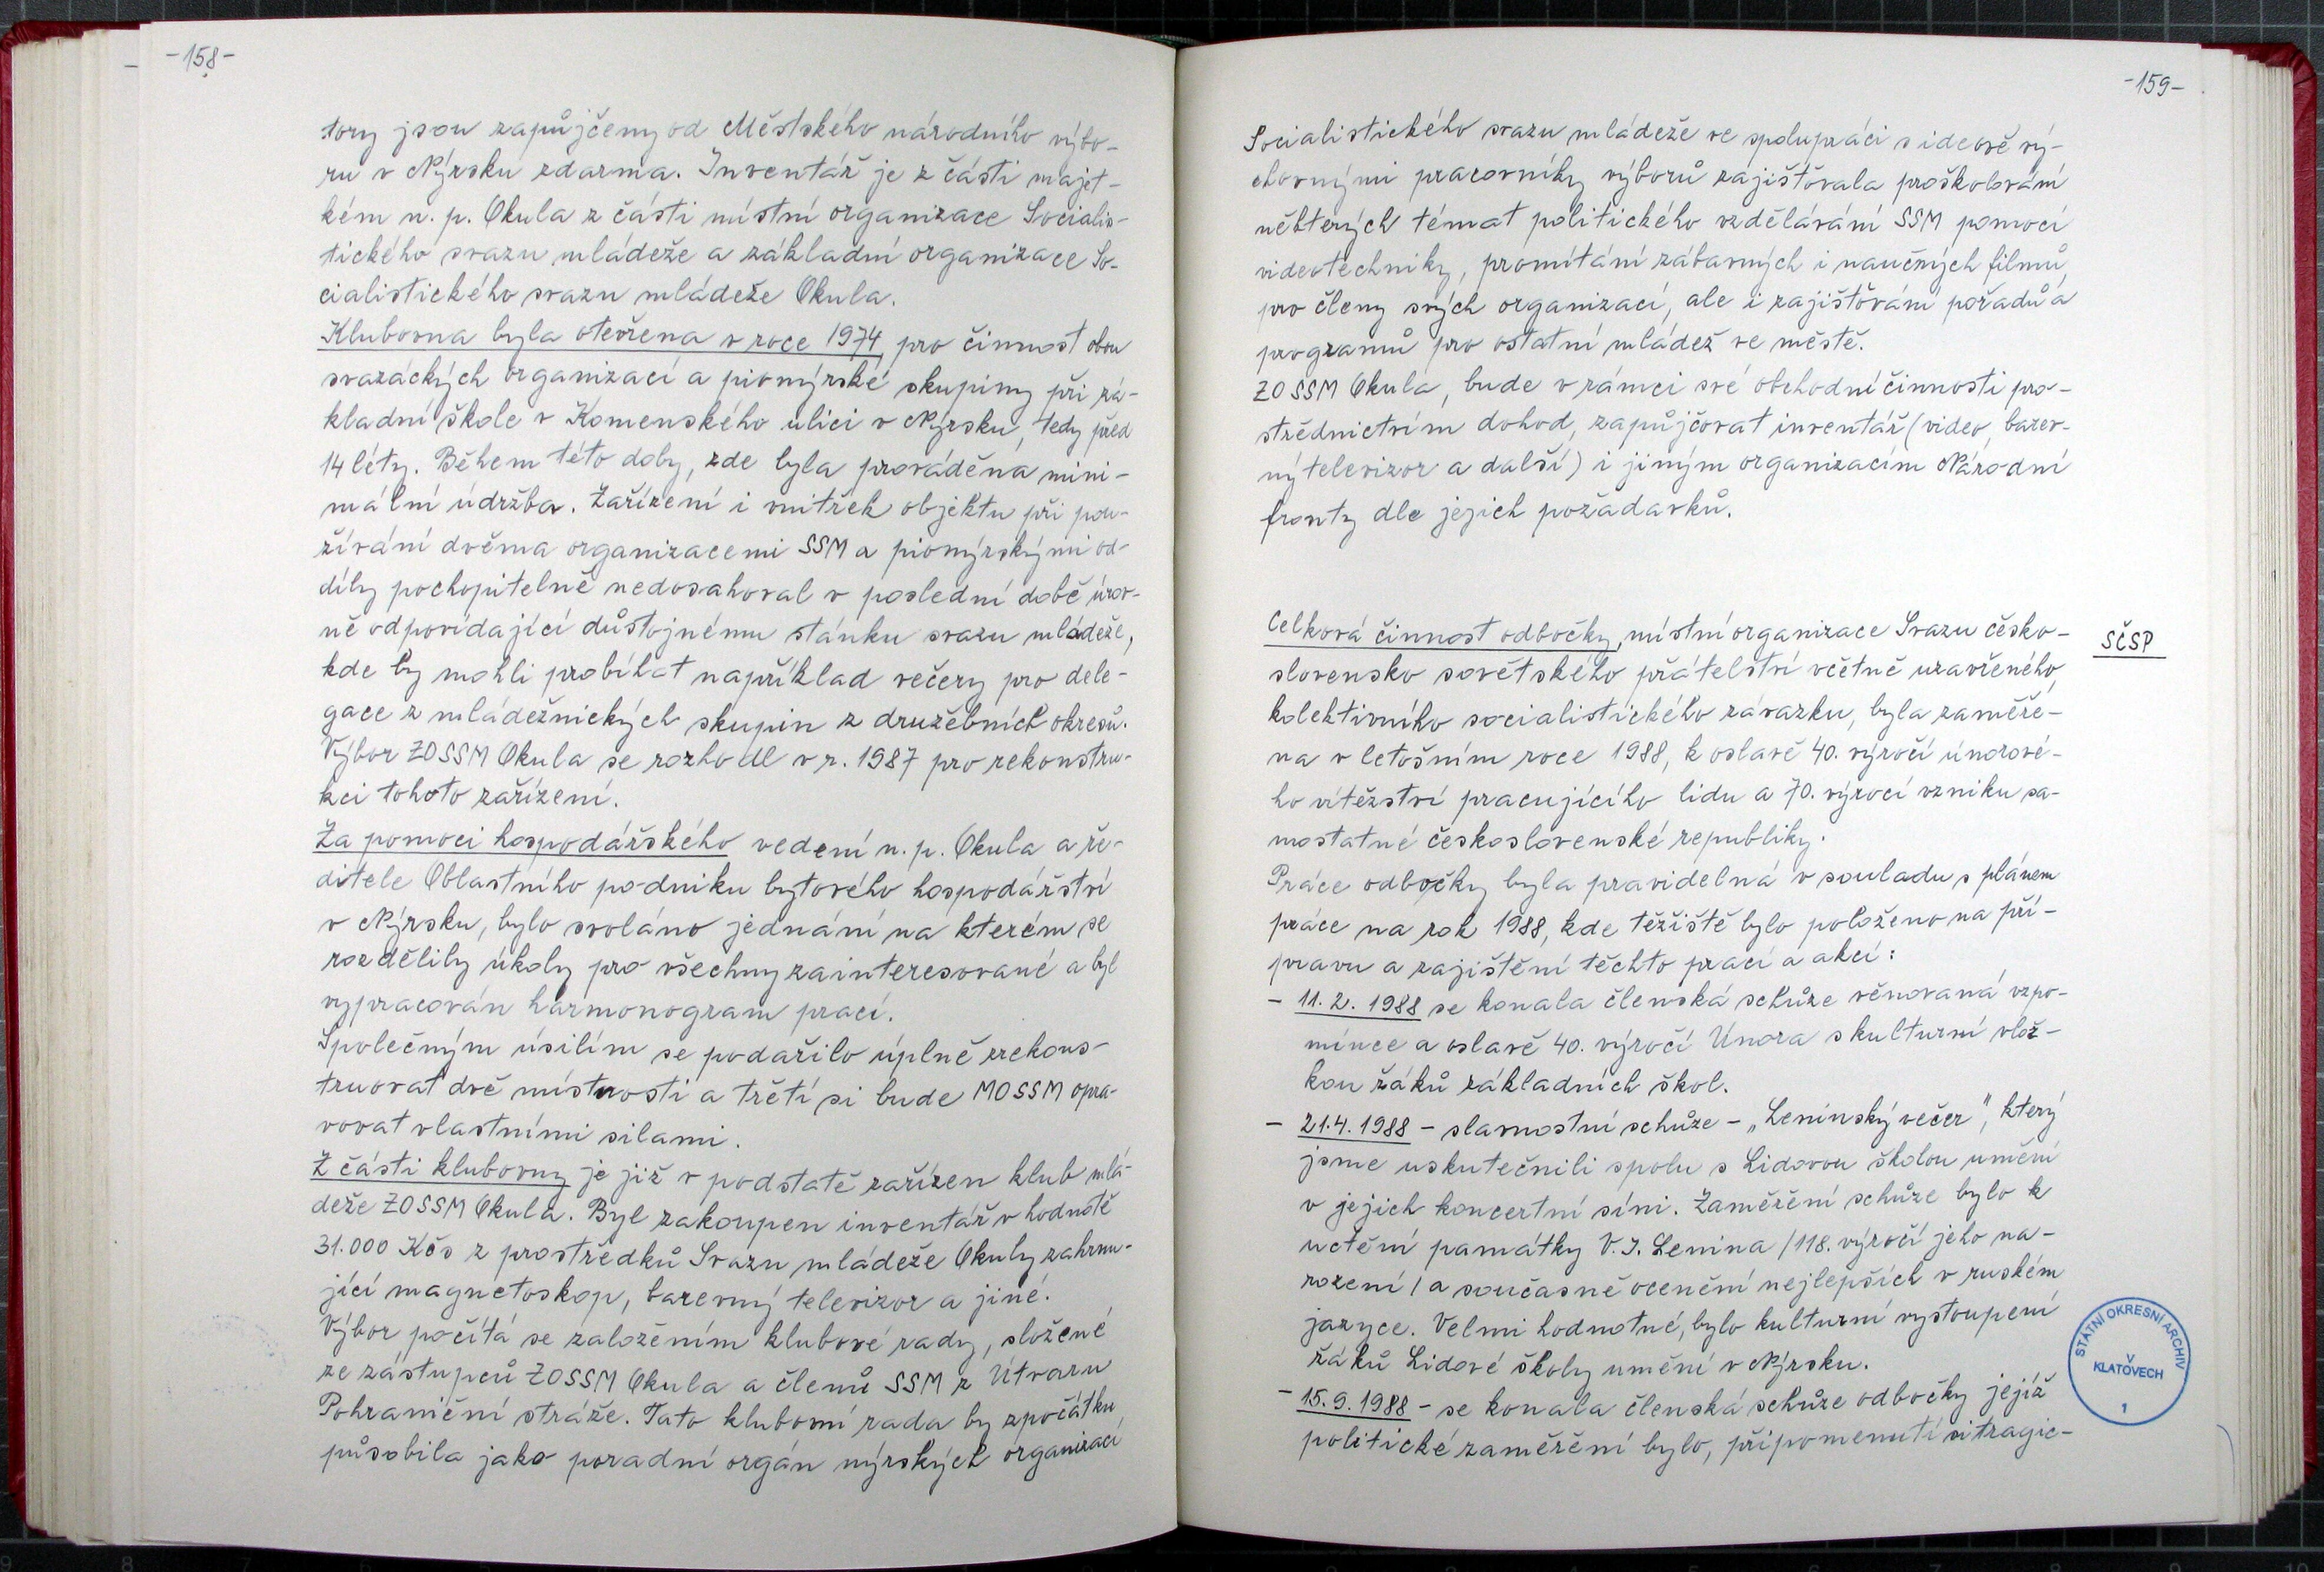 -158-
tory jsou zapůjčeny od Městského národního výbo-
ru v Nýrsku zdarma. Inventář je z části majet-
kém n. p. Okula z části místní organizace Socialis-
tického svazu mládeže a základní organizace So-
cialistického svazu mládeže Okula.
Klubovna byla otevřena v roce 1974, pro činnost obou
svazáckých organizací a pionýrské skupiny při zá-
kladní škole v Komenského ulici v Nýrsku, tedy před
14 léty. Během této doby, zde byla prováděna mini-
mální údržba. Zařízení i vnitřek objektu při pou-
žívání dvěma organizacemi SSM a pionýrskými od-
díly pochopitelně nedosahoval v poslední době úrov-
ně odpovídající důstojnému stánku svazu mládeže,
kde by mohli probíhat například večery pro dele-
gace z mládežnických skupin z družebních okresů.
Výbor ZO SSM Okula se rozhodl v r. 1987 pro rekonstru-
kci tohoto zařízení.
Za pomoci hospodářského vedení n. p. Okula a ře-
ditele Oblastního podniku bytového hospodářství
v Nýrsku, bylo svoláno jednání na kterém se
rozdělily úkoly pro všechny zainteresované a byl
vypracován harmonogram prací.
Společným úsilím se podařilo úplně zrekons-
truovat dvě místnosti a třetí si bude MO SSM opra-
vovat vlastními silami.
Z části klubovny je již v podstatě zařízen klub mlá-
deže ZO SSM Okula. Byl zakoupen inventář v hodnotě
31.000 Kčs z prostředků Svazu mládeže Okuly zahrnu-
jící magnetoskop, barevný televizor a jiné.
Výbor počítá se založením klubové rady, složené
ze zástupců ZO SSM Okula a členů SSM z Útvaru
Pohraniční stráže. Tato klubovní rada by zpočátku
působila jako poradní orgán nýrských organizací
-159-
Socialistického svazu mládeže ve spolupráci s ideově vý-
chovnými pracovníky výborů zajišťovala proškolování
některých témat politického vzdělávání SSM pomocí
videotechniky, promítání zábavných i naučných filmů,
pro členy svých organizací, ale i zajišťování pořadů a
programů pro ostatní mládež ve městě.
ZO SSM Okula, bude v rámci své obchodní činnosti pro-
střednictvím dohod, zapůjčovat inventář (video, barev-
ný televizor a další) i jiným organizacím Národní
fronty dle jejich požadavků.
Celková činnost odbočky, místní organizace Svazu česko-
SČSP
slovensko sovětského přátelství včetně uzavřeného
kolektivního socialistického závazku, byla zaměře-
na v letošním roce 1988, k oslavě 40. výročí únorové-
ho vítězství pracujícího lidu a 70. výročí vzniku sa-
mostatné československé republiky.
Práce odbočky byla pravidelná v souladu s plánem
práce na rok 1988, kde těžiště bylo položeno na pří-
pravu a zajištění těchto prací a akcí:
- 11. 2. 1988 se konala členská schůze věnovaná vzpo-
mínce a oslavě 40. výročí Února s kulturní vlož-
kou žáků základních škol.
- 21. 4. 1988 - slavnostní schůze - „Leninský večer", který
jsme uskutečnili spolu s Lidovou školou umění
v jejich koncertní síni. Zaměření schůze bylo k
uctění památky V. I. Lenina /118. výročí jeho na-
rození/ a současně ocenění nejlepších v ruském
jazyce. Velmi hodnotné, bylo kulturní vystoupení
žáků Lidové školy umění v Nýrsku.
- 15. 9. 1988 - se konala členská schůze odbočky jejíž
politické zaměření bylo, připomenutí si tragic-
STÁTNÍ OKRESNÍ ARCHIV
V
KLATOVECH
1